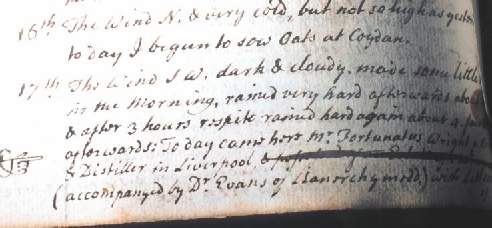 16th The Wind N. & very cold, but not so high as yest
today I begun to sow Oats at Coydan.
17th The Wind S W. dark & cloudy, made some little
in the Morning, rained very hard afterwards
& after 3 hours respite rained hard again about a
afterwards; To day came here Mr. Fortunatus Wright
& Distiller in Liverpool &
(accompanyed by Dr. Evans of Llanerchymedd,) with